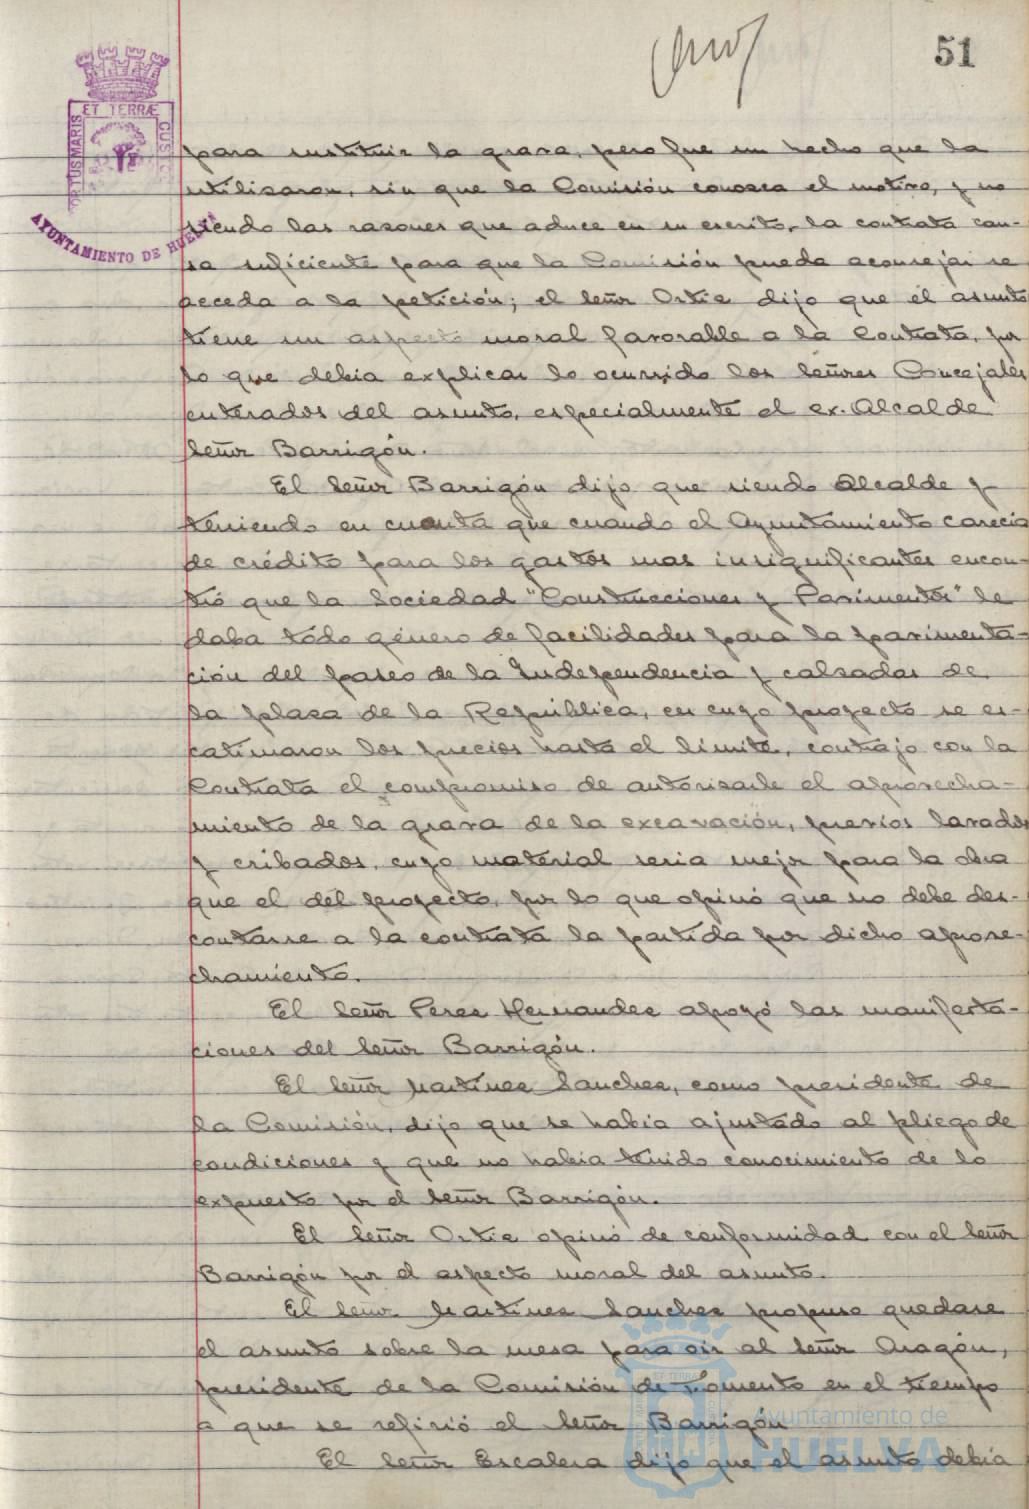 51
ET TERRÆ
PORTUS MARIS
CUSTO
AYUNTAMIENTO DE HUELVA
para sustituir la grava, pero fue un hecho que la
utilizaron, sin que la Comisión conozca el motivo, y no
siendo las razones que aduce en su escrito, la contrata cau-
sa suficiente para que la Comisión pueda aconsejar se
acceda a la petición; el Señor Ortiz dijo que el asunto
tiene un aspecto moral favorable a la Contrata, por
lo que debia explicar lo ocurrido los Señores Concejales
enterados del asunto, especialmente el ex-Alcalde
Señor Barrigón.
El Señor Barrigón dijo que siendo Alcalde y
teniendo en cuenta que cuando el Ayuntamiento carecia
de crédito para los gastos mas insignificantes encon-
tró que la Sociedad "Construcciones y Pavimentos" le
daba todo género de facilidades para la pavimenta-
ción del paseo de la Independencia y calzadas de
la plaza de la República, en cuyo proyecto se es-
catimaron los precios hasta el limite, contrajo con la
Contrata el compromiso de autorizarle el aprovecha-
miento de la grava de la excavación, previos lavados
y cribados, cuyo material seria mejor para la obra
que el del proyecto, por lo que opinó que no debe des-
contarse a la contrata la partida por dicho aprove-
chamiento.
El Señor Perez Hernandez apoyó las manifesta-
ciones del Señor Barrigón.
El Señor Martinez Sanchez, como presidente de
la Comisión, dijo que se habia ajustado al pliego de
condiciones y que no habia tenido conocimiento de lo
expuesto por el Señor Barrigón.
El Señor Ortiz opinó de conformidad con el Señor
Barrigón por el aspecto moral del asunto.
El Señor Martinez Sanchez propuso quedase
el asunto sobre la mesa para oir al Señor Aragón,
presidente de la Comisión de Fomento en el tiempo
a que se refirió el Señor Barrigón
El Señor Escalera dijo que el asunto debia
Ayuntamiento de
HUELVA